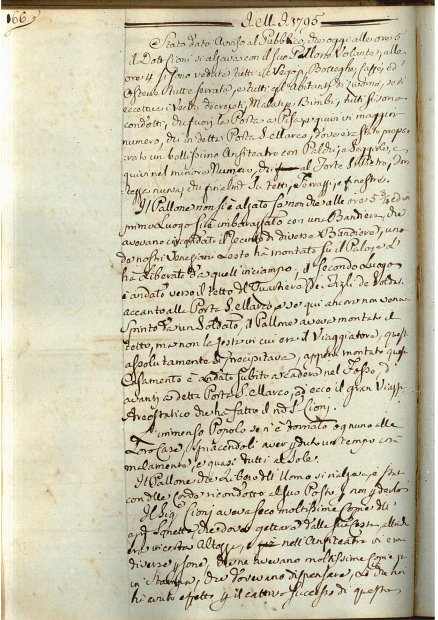 166
A. M. D. 1795
Stato dato Avviso al Pubblico, che oggi alle ore 5
il Dott. Cioni si alzava con il suo Pallone Volante; alle
ore 4 si sono vedute tutte le Botteghe, Caffè, ed
Osterie tutte serrate, e tutti gli Abitanti di Livorno, se si
eccettua i Vecchi decrepiti, Malati, e Bimbi, tutti si sono
condotti, chi fuori la Porta a Pisa, e qui vi maggior
numero, chi in detta Porta S. Marco, dove era stato prepa-
rato un bellissimo Anfiteatro con Palchi, e Seggiole, e
quivi nel minore Numero, chi al Forte S. Pietro,
chi finalmente su tetti, Terrazzi, e finestre.
Il Pallone non si è alzato se non che alle ore 5 3/4, ed in
primo Luogo si è imbarazzato con una Bandiera, che
avevano circondato il Recinto di diverse Bandiere, uno
de nostri Veneziani lesto ha montato su il Palo, e l'
ha liberato da quell' inciampo; il secondo Luogo
è andato verso il tetto del Quartiere
accanto alla Porta S. Marco, e se qui ancora non veniva
spinto da un Soldato, il Pallone aveva montato il
tetto, ma non le Ceste in cui era il Viaggiatore, quest'
assolutamente si precipitava, appena montato questo
Casamento è andato subito a cadere nel Fosso,
avanti a detta Porta S. Marco, ed ecco il gran Viaggio
Areostatico che ha fatto il nostro S. Cioni.
L' immenso Popolo se n' è tornato ognuno alle
Loro Case, spiacendoli aver perduto un tempo con-
malamente, e quasi tutti al Sole.
Il Pallone che Libero dell' Uomo si rialzava, è stat
con delle Corde ricondotto al suo Posto
Il Sig. Cioni aveva seco moltissime Copie dell'
che doveva gettare dalla sua Cesta, allorch
era in certa Altezza, e nell' Anfiteatro vi era
diverse persone, che ne tenevano moltissime Copie
in che dovevano dispensare,
avuto effetto per il cattivo successo di questo